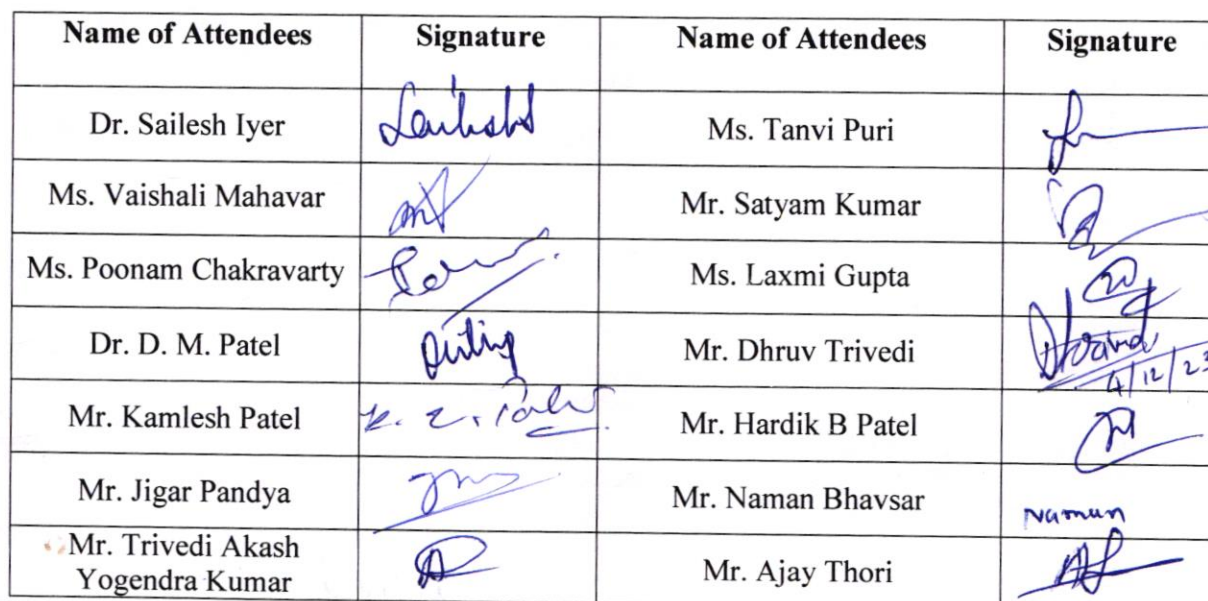 Name of Attendees Signature Name of Attendees Signature
Dr. Sailesh Iyer Ms. Tanvi Puri
Ms. Vaishali Mahavar Mr. Satyam Kumar
Ms. Poonam Chakravarty Ms. Laxmi Gupta
Dr. D. M. Patel Mr. Dhruv Trivedi
4/12/23
Mr. Kamlesh Patel Mr. Hardik B Patel
Mr. Jigar Pandya Mr. Naman Bhavsar Naman
Mr. Trivedi Akash
Yogendra Kumar Mr. Ajay Thori